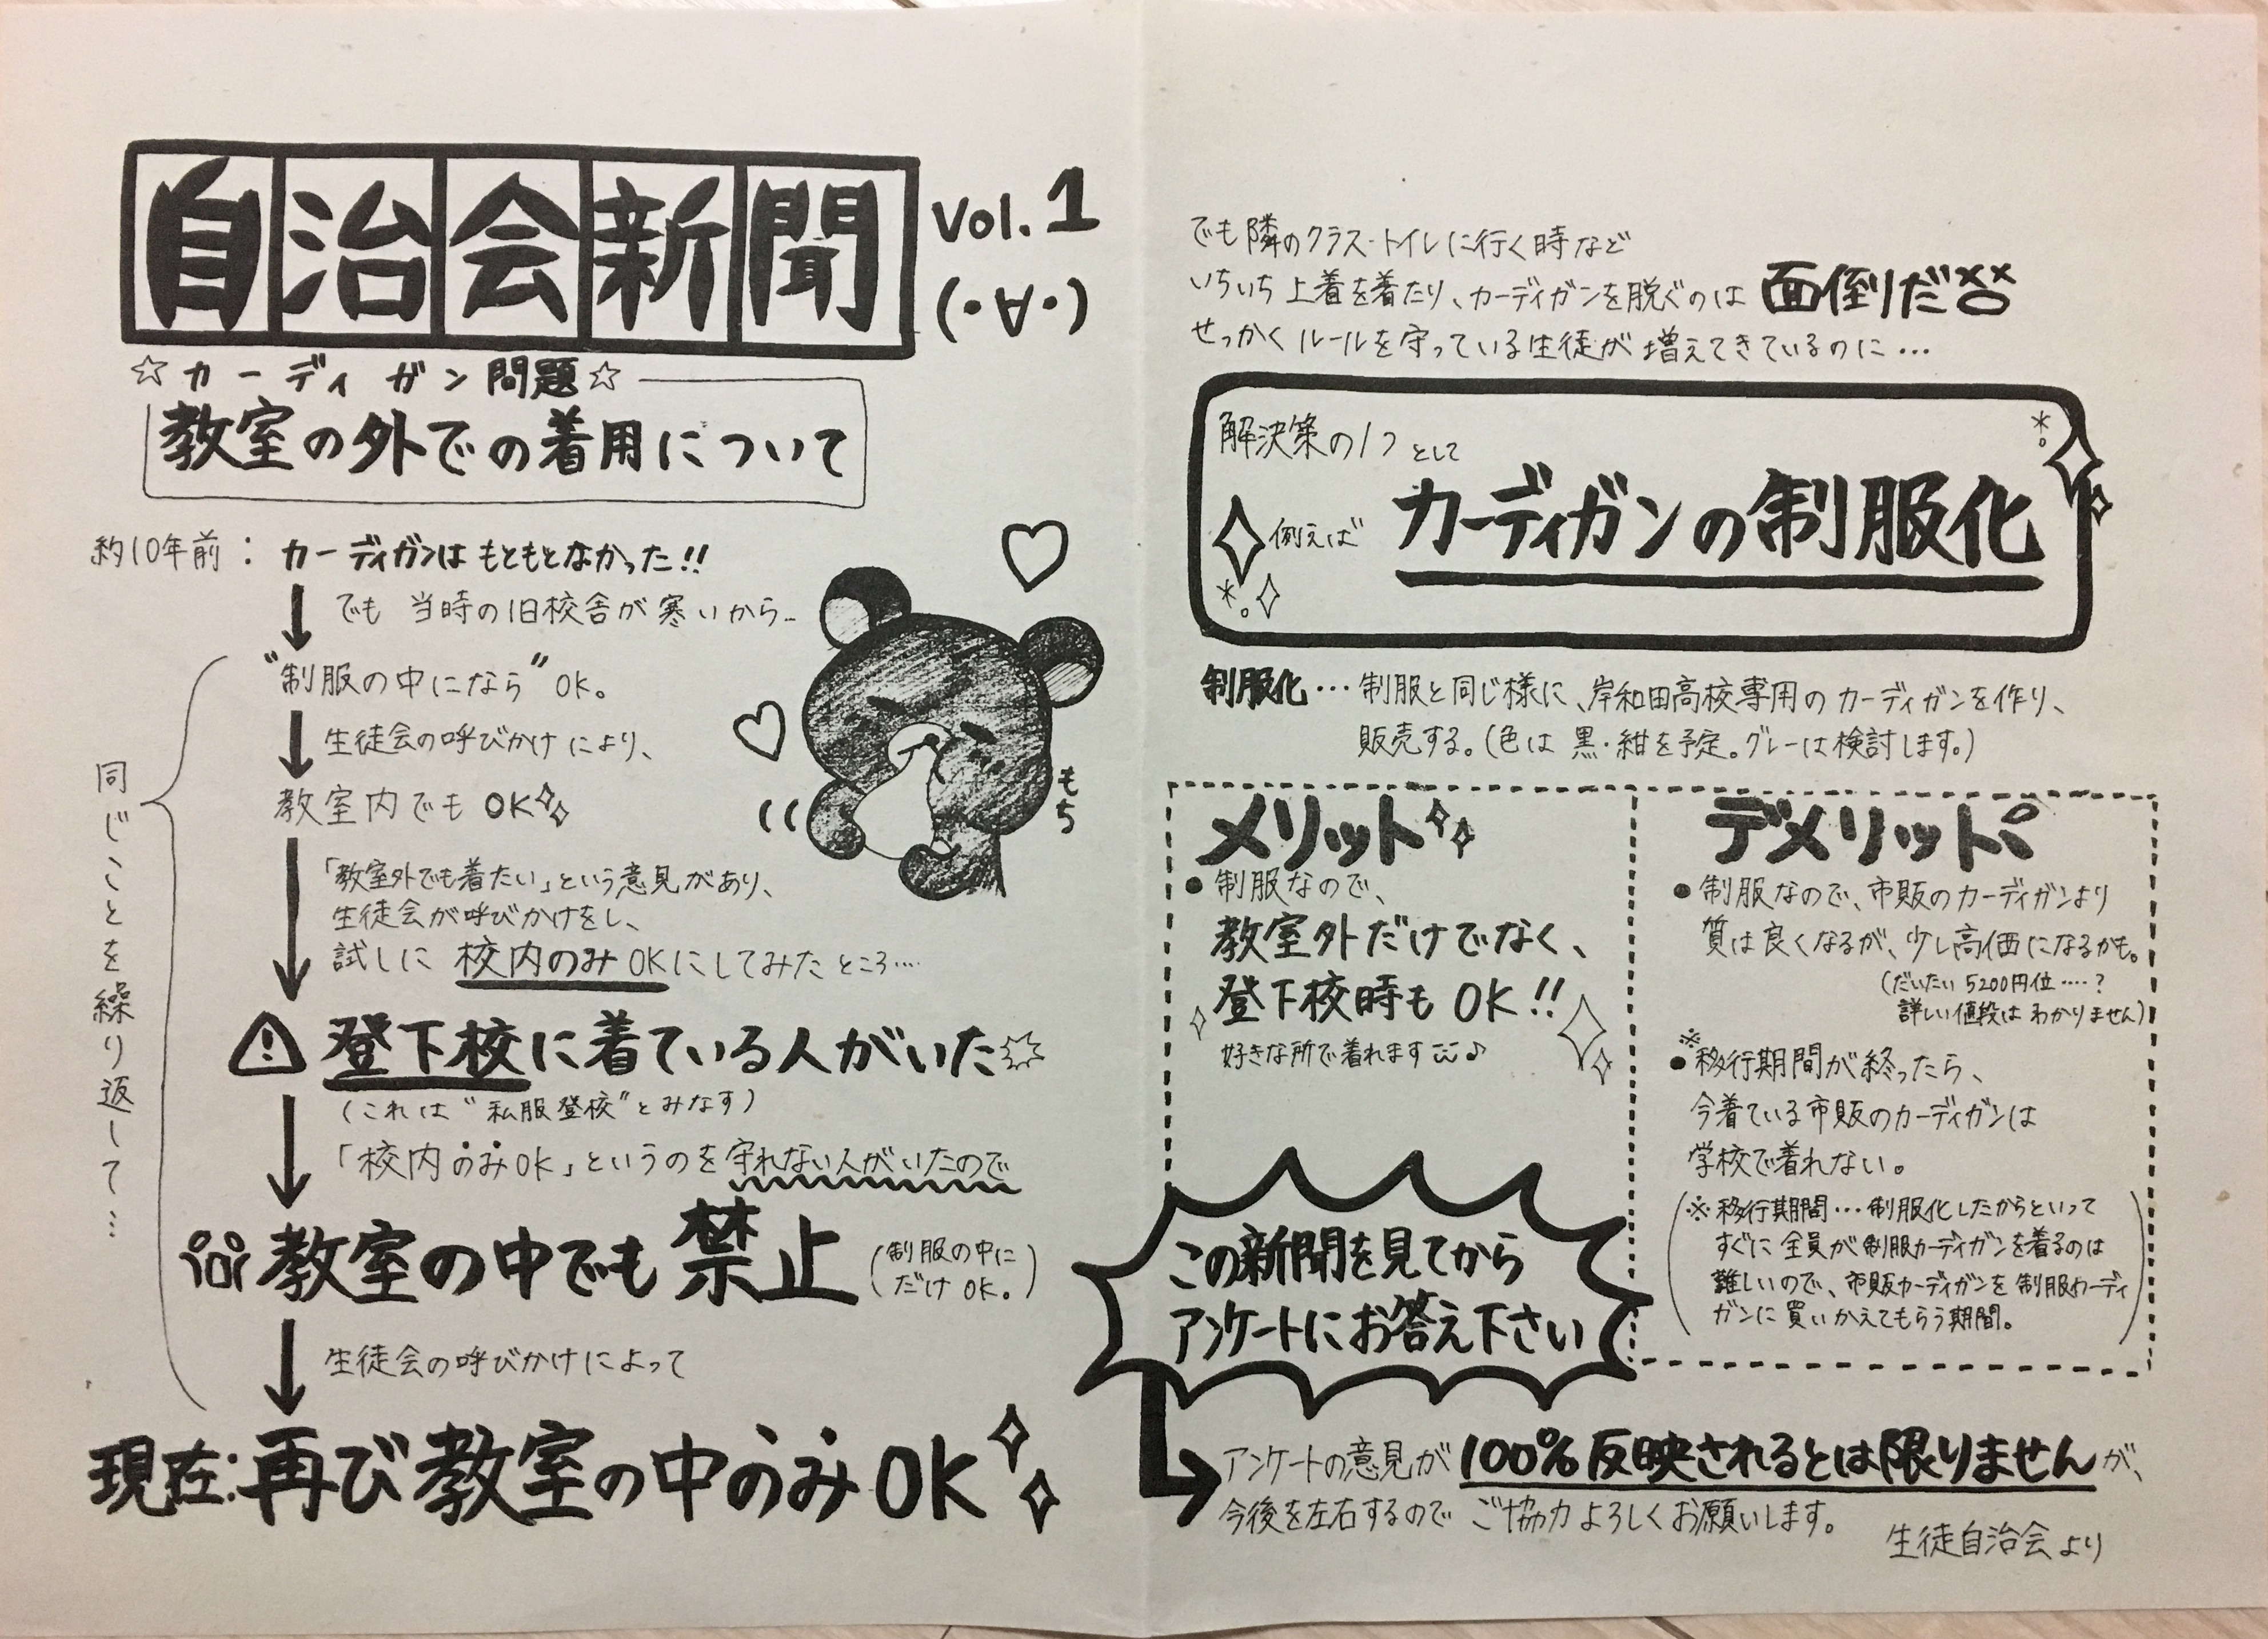 自治会新聞 Vol.1
(・∀・)
☆カーディガン問題☆
教室の外での着用について
約10年前：カーディガンはもともとなかった!!
でも当時の旧校舎が寒いから…
"制服の中になら"OK。
生徒会の呼びかけにより、
教室内でもOK
「教室外でも着たい」という意見があり、
生徒会が呼びかけをし、
試しに校内のみOKにしてみたところ…
登下校に着ている人がいた
(これは"私服登校"とみなす)
「校内のみOK」というのを守れない人がいたので
教室の中でも禁止(制服の中に
だけOK。)
生徒会の呼びかけによって
現在：再び教室の中のみOK
同じことを繰り返して…
もち
でも隣のクラス・トイレに行く時など
いちいち上着を着たり、カーディガンを脱ぐのは面倒だ
せっかくルールを守っている生徒が増えてきているのに…
解決策の1つとして
例えばカーディガンの制服化
制服化…制服と同じ様に、岸和田高校専用のカーディガンを作り、
販売する。(色は黒・紺を予定。グレーは検討します。)
メリット
●制服なので、
教室外だけでなく、
登下校時もOK!!
好きな所で着れます♪
デメリット
●制服なので、市販のカーディガンより
質は良くなるが、少し高価になるかも。
(だいたい5200円位……?
詳しい値段はわかりません)
●※移行期間が終ったら、
今着ている市販のカーディガンは
学校で着れない。
(※移行期間…制服化したからといって
すぐに全員が制服カーディガンを着るのは
難しいので、市販カーディガンを制服カーディ
ガンに買いかえてもらう期間。)
この新聞を見てから
アンケートにお答え下さい
アンケートの意見が100%反映されるとは限りませんが、
今後を左右するのでご協力よろしくお願いします。
生徒自治会より